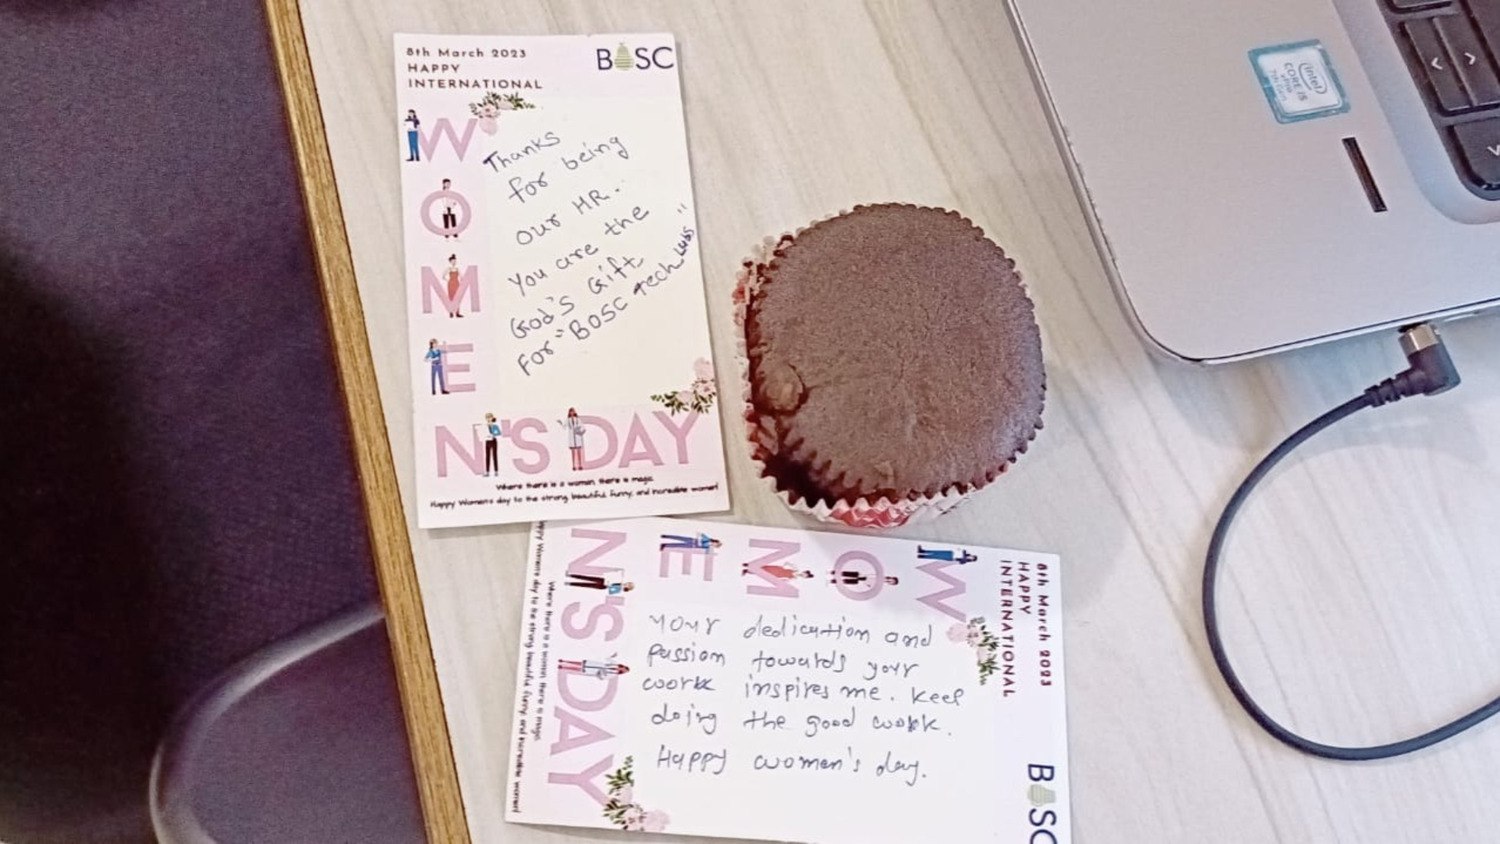 8th March 2023
HAPPY
INTERNATIONAL
BOSC
WOMEN'S DAY
Thanks
for being
our HR.
You are the
God's Gift
For "BOSC Tech Labs"
Where there is a woman, there is magic.
Happy Women's day to the strong, beautiful, funny, and incredible women!
8th March 2023
HAPPY
INTERNATIONAL
BOSC
WOMEN'S DAY
Your dedication and
passion towards your
work inspires me. Keep
doing the good work.
Happy women's day.
Where there is a woman, there is magic.
Happy Women's day to the strong, beautiful, funny, and incredible women!
intel
CORE i5
vPro